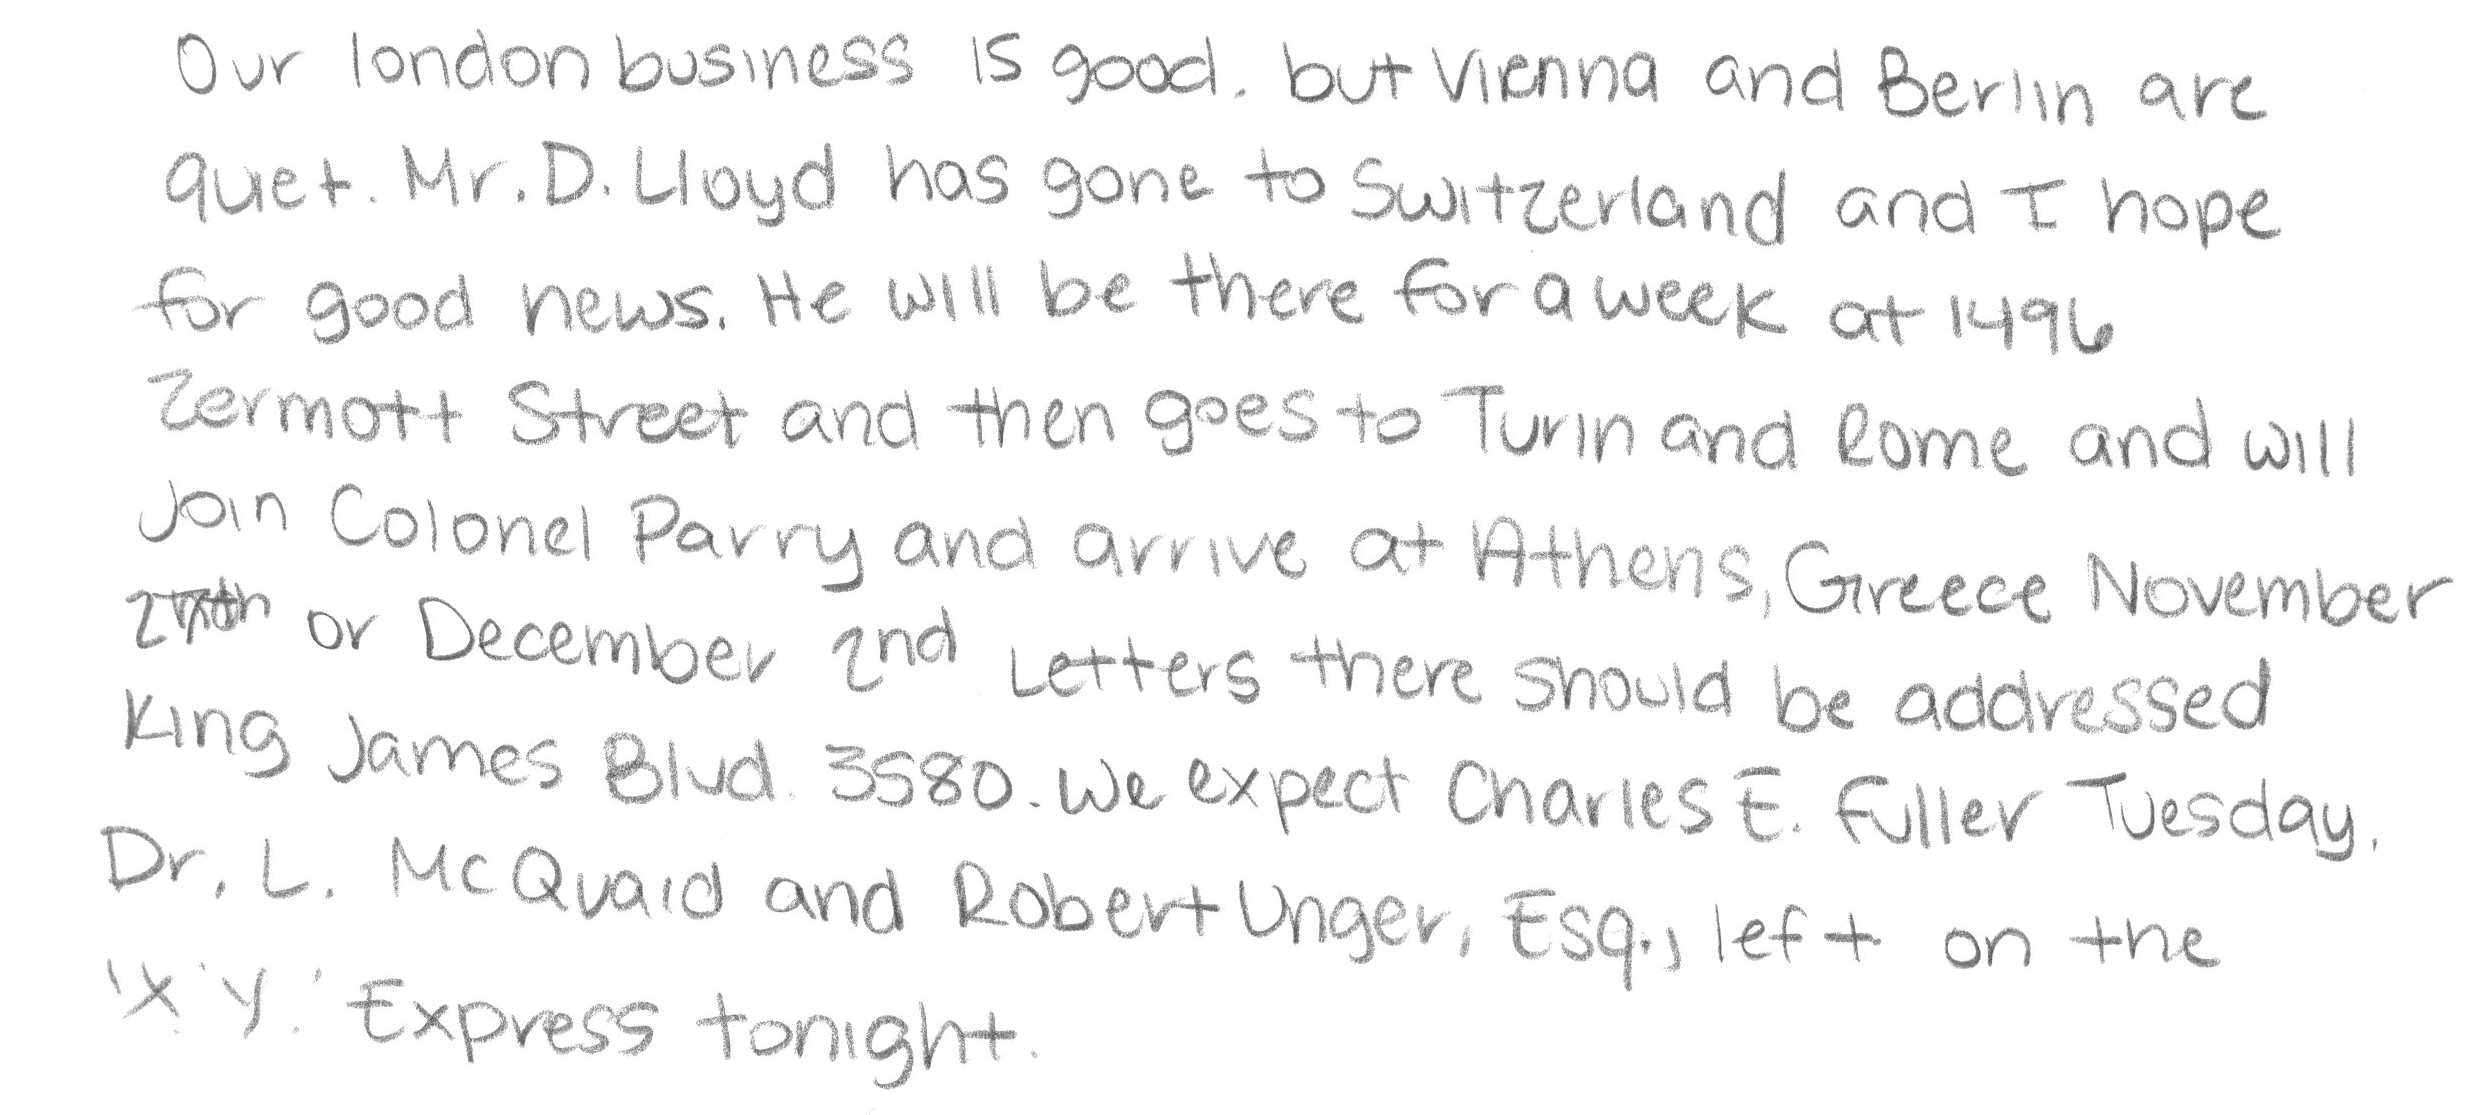 Our london business is good. but Vienna and Berlin are
quiet. Mr. D. Lloyd has gone to Switzerland and I hope
for good news. He will be there for a week at 1496
Zermott Street and then goes to Turin and Rome and will
Join Colonel Parry and arrive at Athens, Greece November
or December 2nd Letters there should be addressed
King James Blvd. 3580. We expect Charles E. Fuller Tuesday.
Dr. L. McQuaid and Robert Unger, Esq., left on the
'X.Y.' Express tonight.